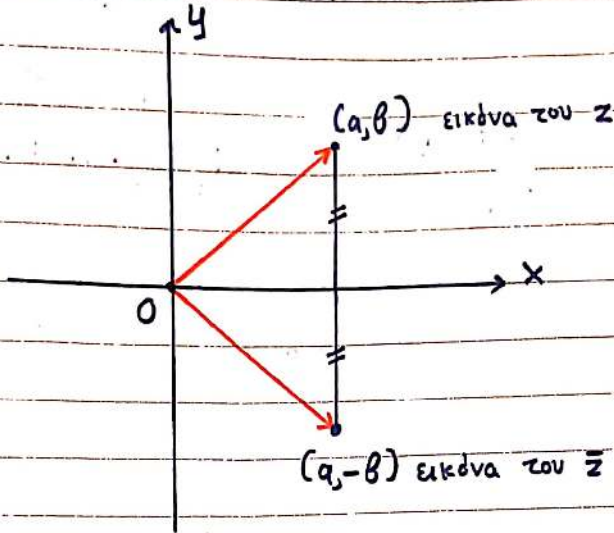 y
(α,β) εικόνα του z
x
O
(α,-β) εικόνα του z̄